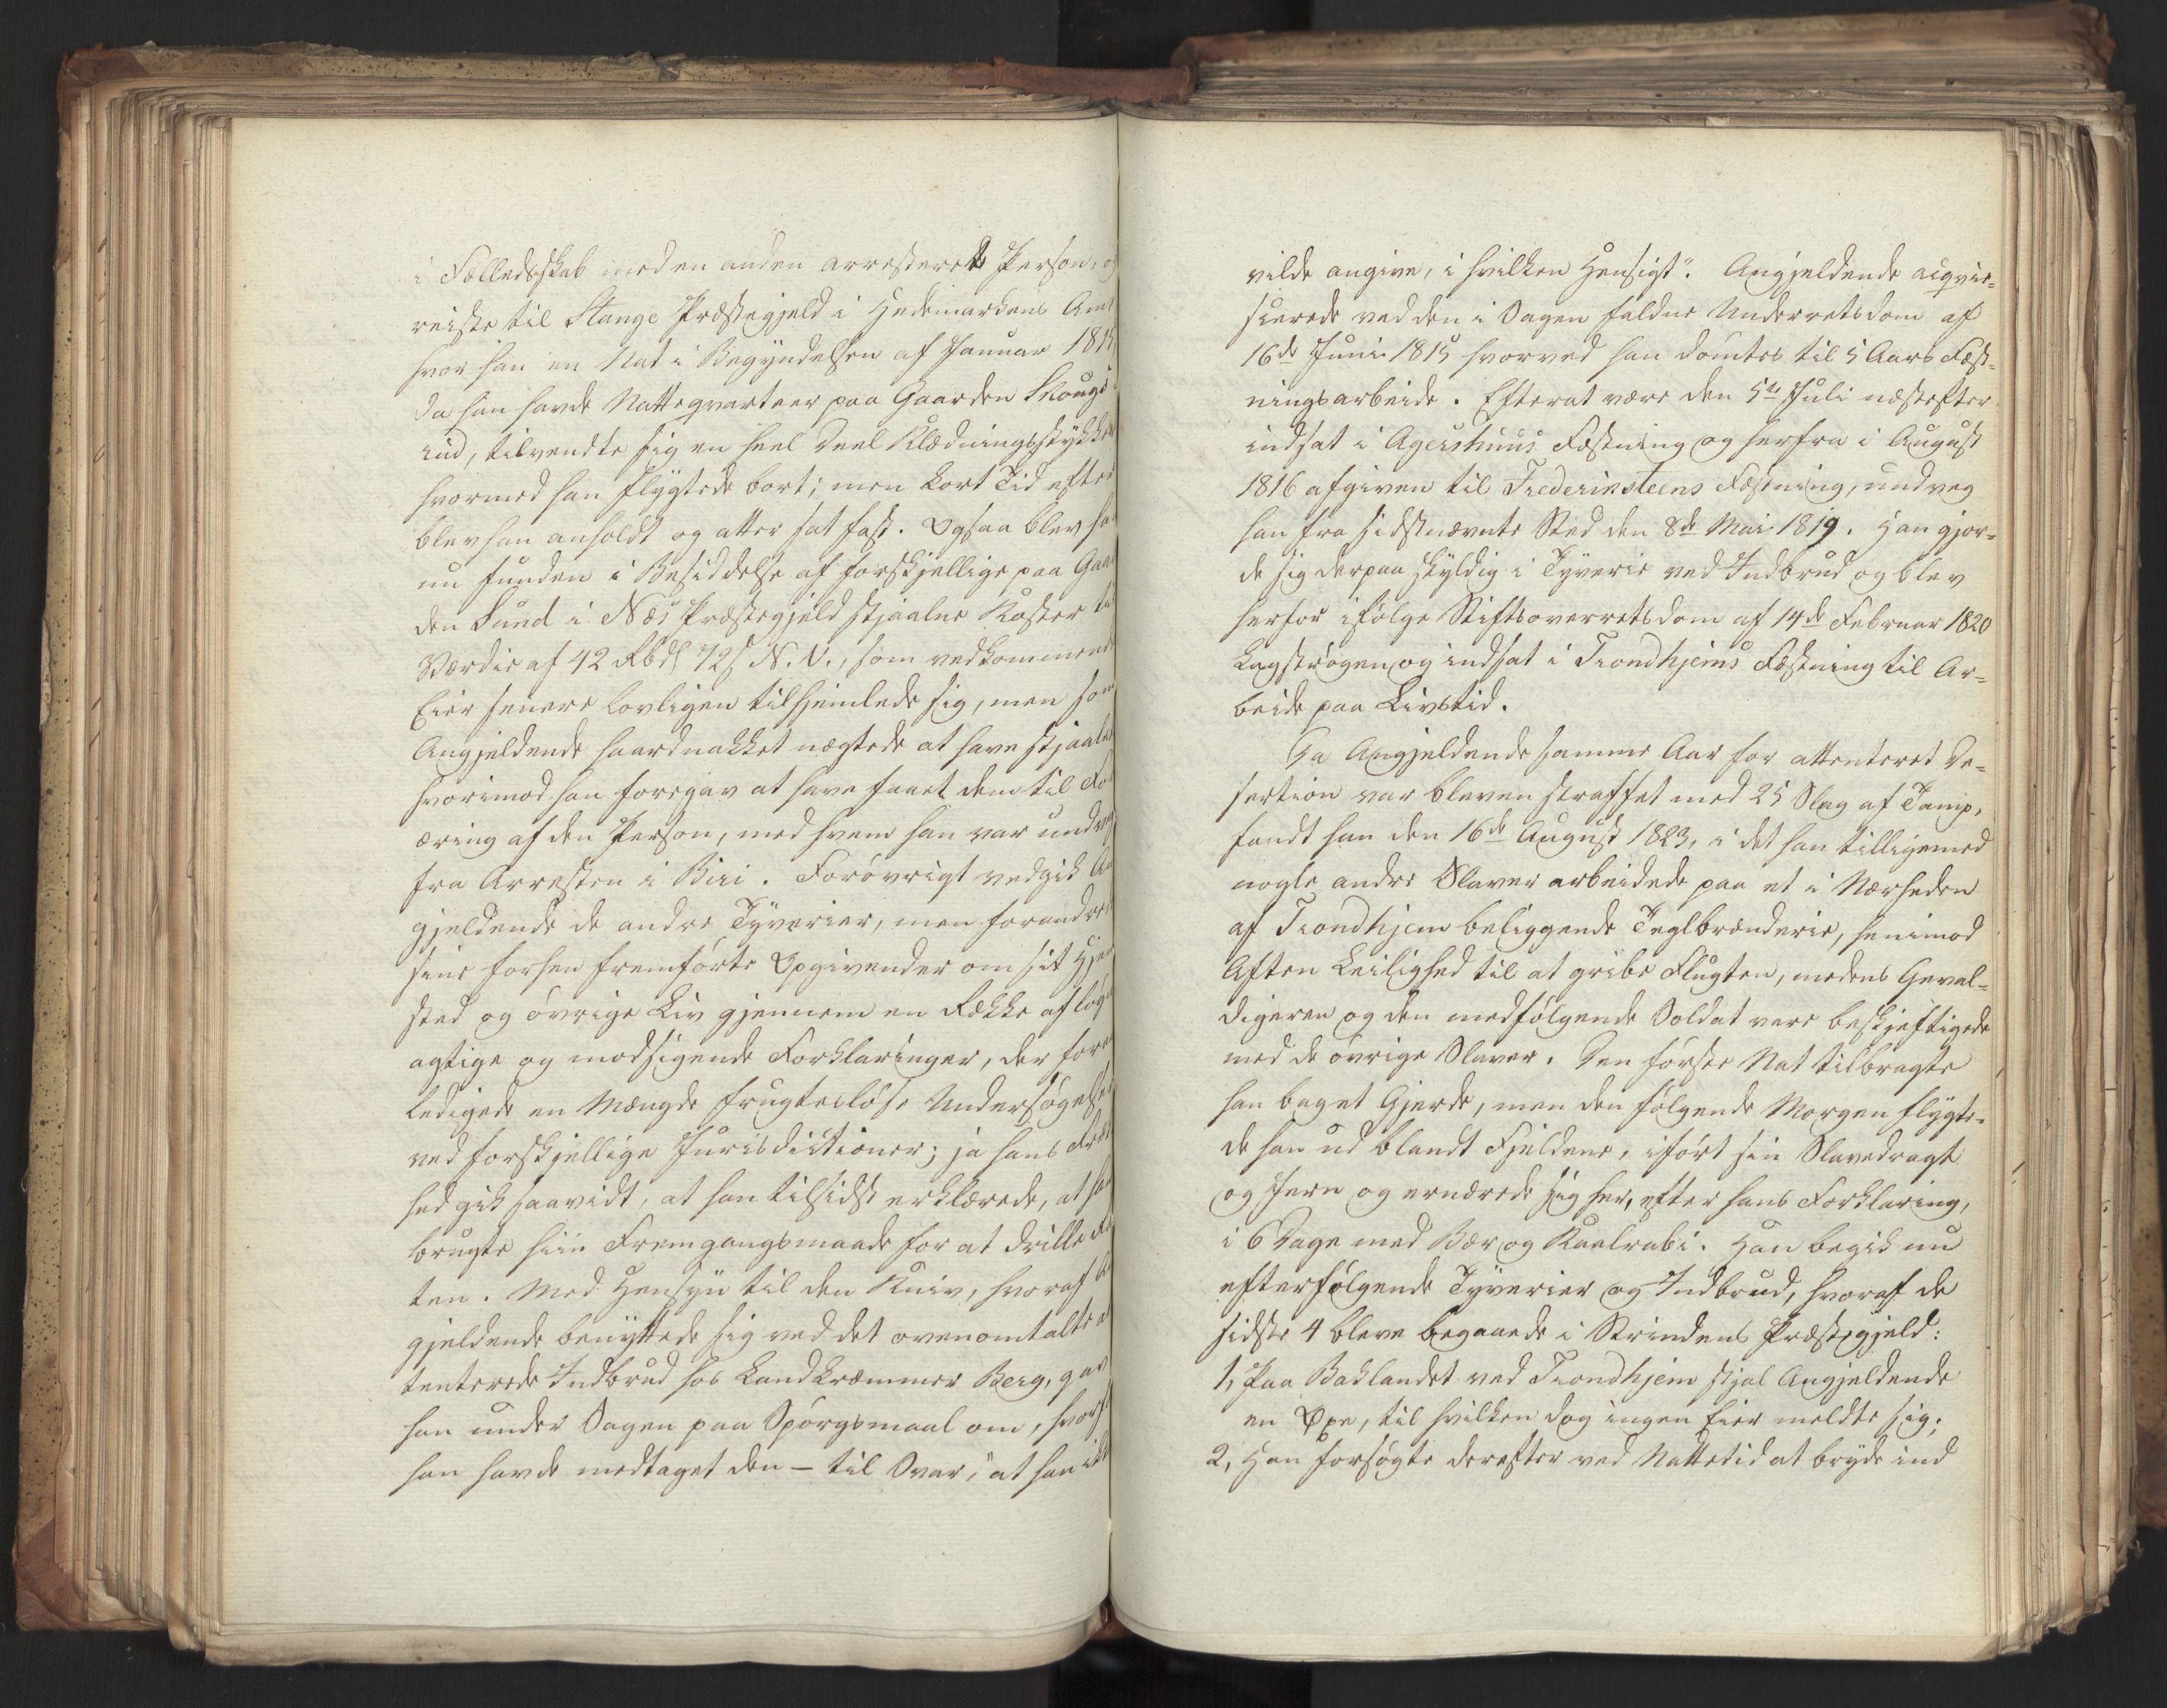 i Fælledsskab med en anden arresteret Person, og
reiste til Stange Præstegjeld i Hedemarkens Amt
hvor han en Nat i Begyndelsen af Januar 1815
da han havde Nattegvarteer paa Gaarden Skougs
lud, tilvendte sig en heel Deel Klædningsstykker
hvormed han flygtede bort; men kort Tid efter
blev han anholdt og atter sat fast. Ogsaa blev han
nu funden i Besiddelse af forskjellige paa Gaar
den Lund i Næs Præstegjeld stjaalne Koster til
Værdie af 42 Rbd 72 s N.V., som vedkommende
Eier senere lovligen tilhjemlede sig, men som
Angjeldende haardnakket nægtede at have stjaalet
hvorimod han foregav at have faaet dem til For
æring af den Person, med hvem han var undveg
fra Arresten i Biri. Forøvrigt vedgik An
gjeldende de andre Tyverier, men forandrede
sine forhen fremførte Opgivender om sit Hjem
sted og øvrige Liv gjennem en Række af løgn
agtige og modsigende Forklaringer, der foran
ledigede en Mængde frugtesløse Undersøgelser
ved forskjellige Jurisdictioner; ja hans Fræk
hed gik saavidt, at han tilsidst erklærede, at han
brugte hiin Fremgangsmaade for at drille Ret
ten. Med Hensyn til den Kniv, hvoraf An
gjeldende benyttede sig ved det ovenomtalte at
tenterede Indbrud hos Landkræmmer Berg, gav
han under Sagen paa Spørgsmaal om, hvorfor
han havde medtaget den – til Svar, "at han ikke
vilde angive, i hvilken Hensigt". Angjeldende acqvie-
scerede ved den i Sagen faldne Underretsdom af
16de Juni 1815 hvorved han dømtes til 5 Aars Fæst-
ningsarbeide. Efterat være den 5te Juli næstefter
indsat i Agershuus Fæstning og herfra i August
1816 afgiven til Frederiksteens Fæstning, undveg
han fra sidstnævnte Sted den 8de Mai 1819. Han gjor-
de sig derpaa skyldig i Tyverie ved Indbrud og blev
herfor ifølge Stiftsoverretsdom af 14de Februar 1820
Kagstrøgen og indsat i Trondhjems Fæstning til Ar-
beide paa Livstid.
Da Angjeldende samme Aar for attenteret De-
sertion var bleven straffet med 25 Slag af Tamp,
fandt han den 16de August 1823, i det han tilligemed
nogle andre Slaver arbeidede paa et i Nærheden
af Trondhjem beliggende Teglbrænderie, henimod
Aften Leilighed til at gribe Flugten, medens Geval-
digeren og den medfølgende Soldat vare beskjeftigede
med de øvrige Slaver. Den første Nat tilbragte
han bag et Gjerde, men den følgende Morgen flygte-
de han ud blandt Fjeldene, iført sin Slavedragt
og Jern og ernærede sig her, efter hans Forklaring,
i 6 Dage med Bær og Kaalrabi. Han begik nu
efterfølgende Tyverier og Indbrud, hvoraf de
sidste 4 bleve begaaede i Strindens Præstegjeld:
1, Paa Baklandet ved Trondhjem stjal Angjeldende
en Øxe, til hvilken dog ingen Eier meldte sig;
2, Han forsøgte derefter ved Nattetid at bryde ind